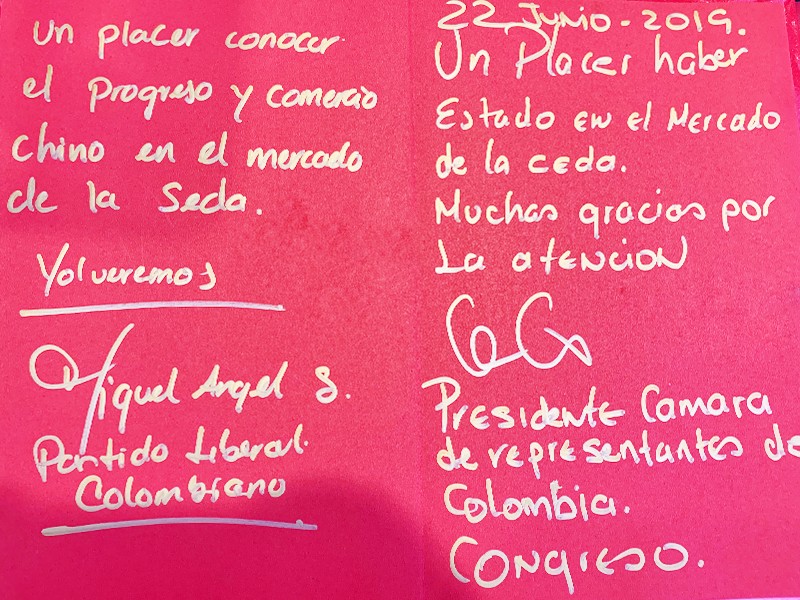 un placer conocer
el Progreso y comercio
chino en el mercado
de la Seda.
Volveremos
Miguel Angel S.
Partido Liberal
Colombiano
22 Junio - 2019.
Un Placer haber
Estado en el Mercado
de la ceda.
Muchas gracias por
La atención
Presidente Camara
de representantes de
Colombia.
Congreso.